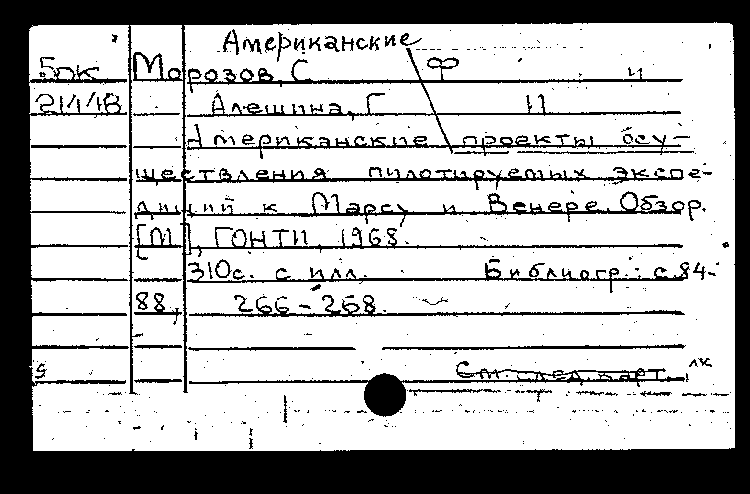 Американские
Бок Морозов, С Ф и
21/1/18 Алешина, Г И
Американские проекты осу-
ществления пилотируемых экспе-
диций к Марсу и Венере. Обзор.
[М], ГОНТИ, 1968.
310с. с илл. Библиогр.: с. 84-
88, 266-268.
См. след. карт.